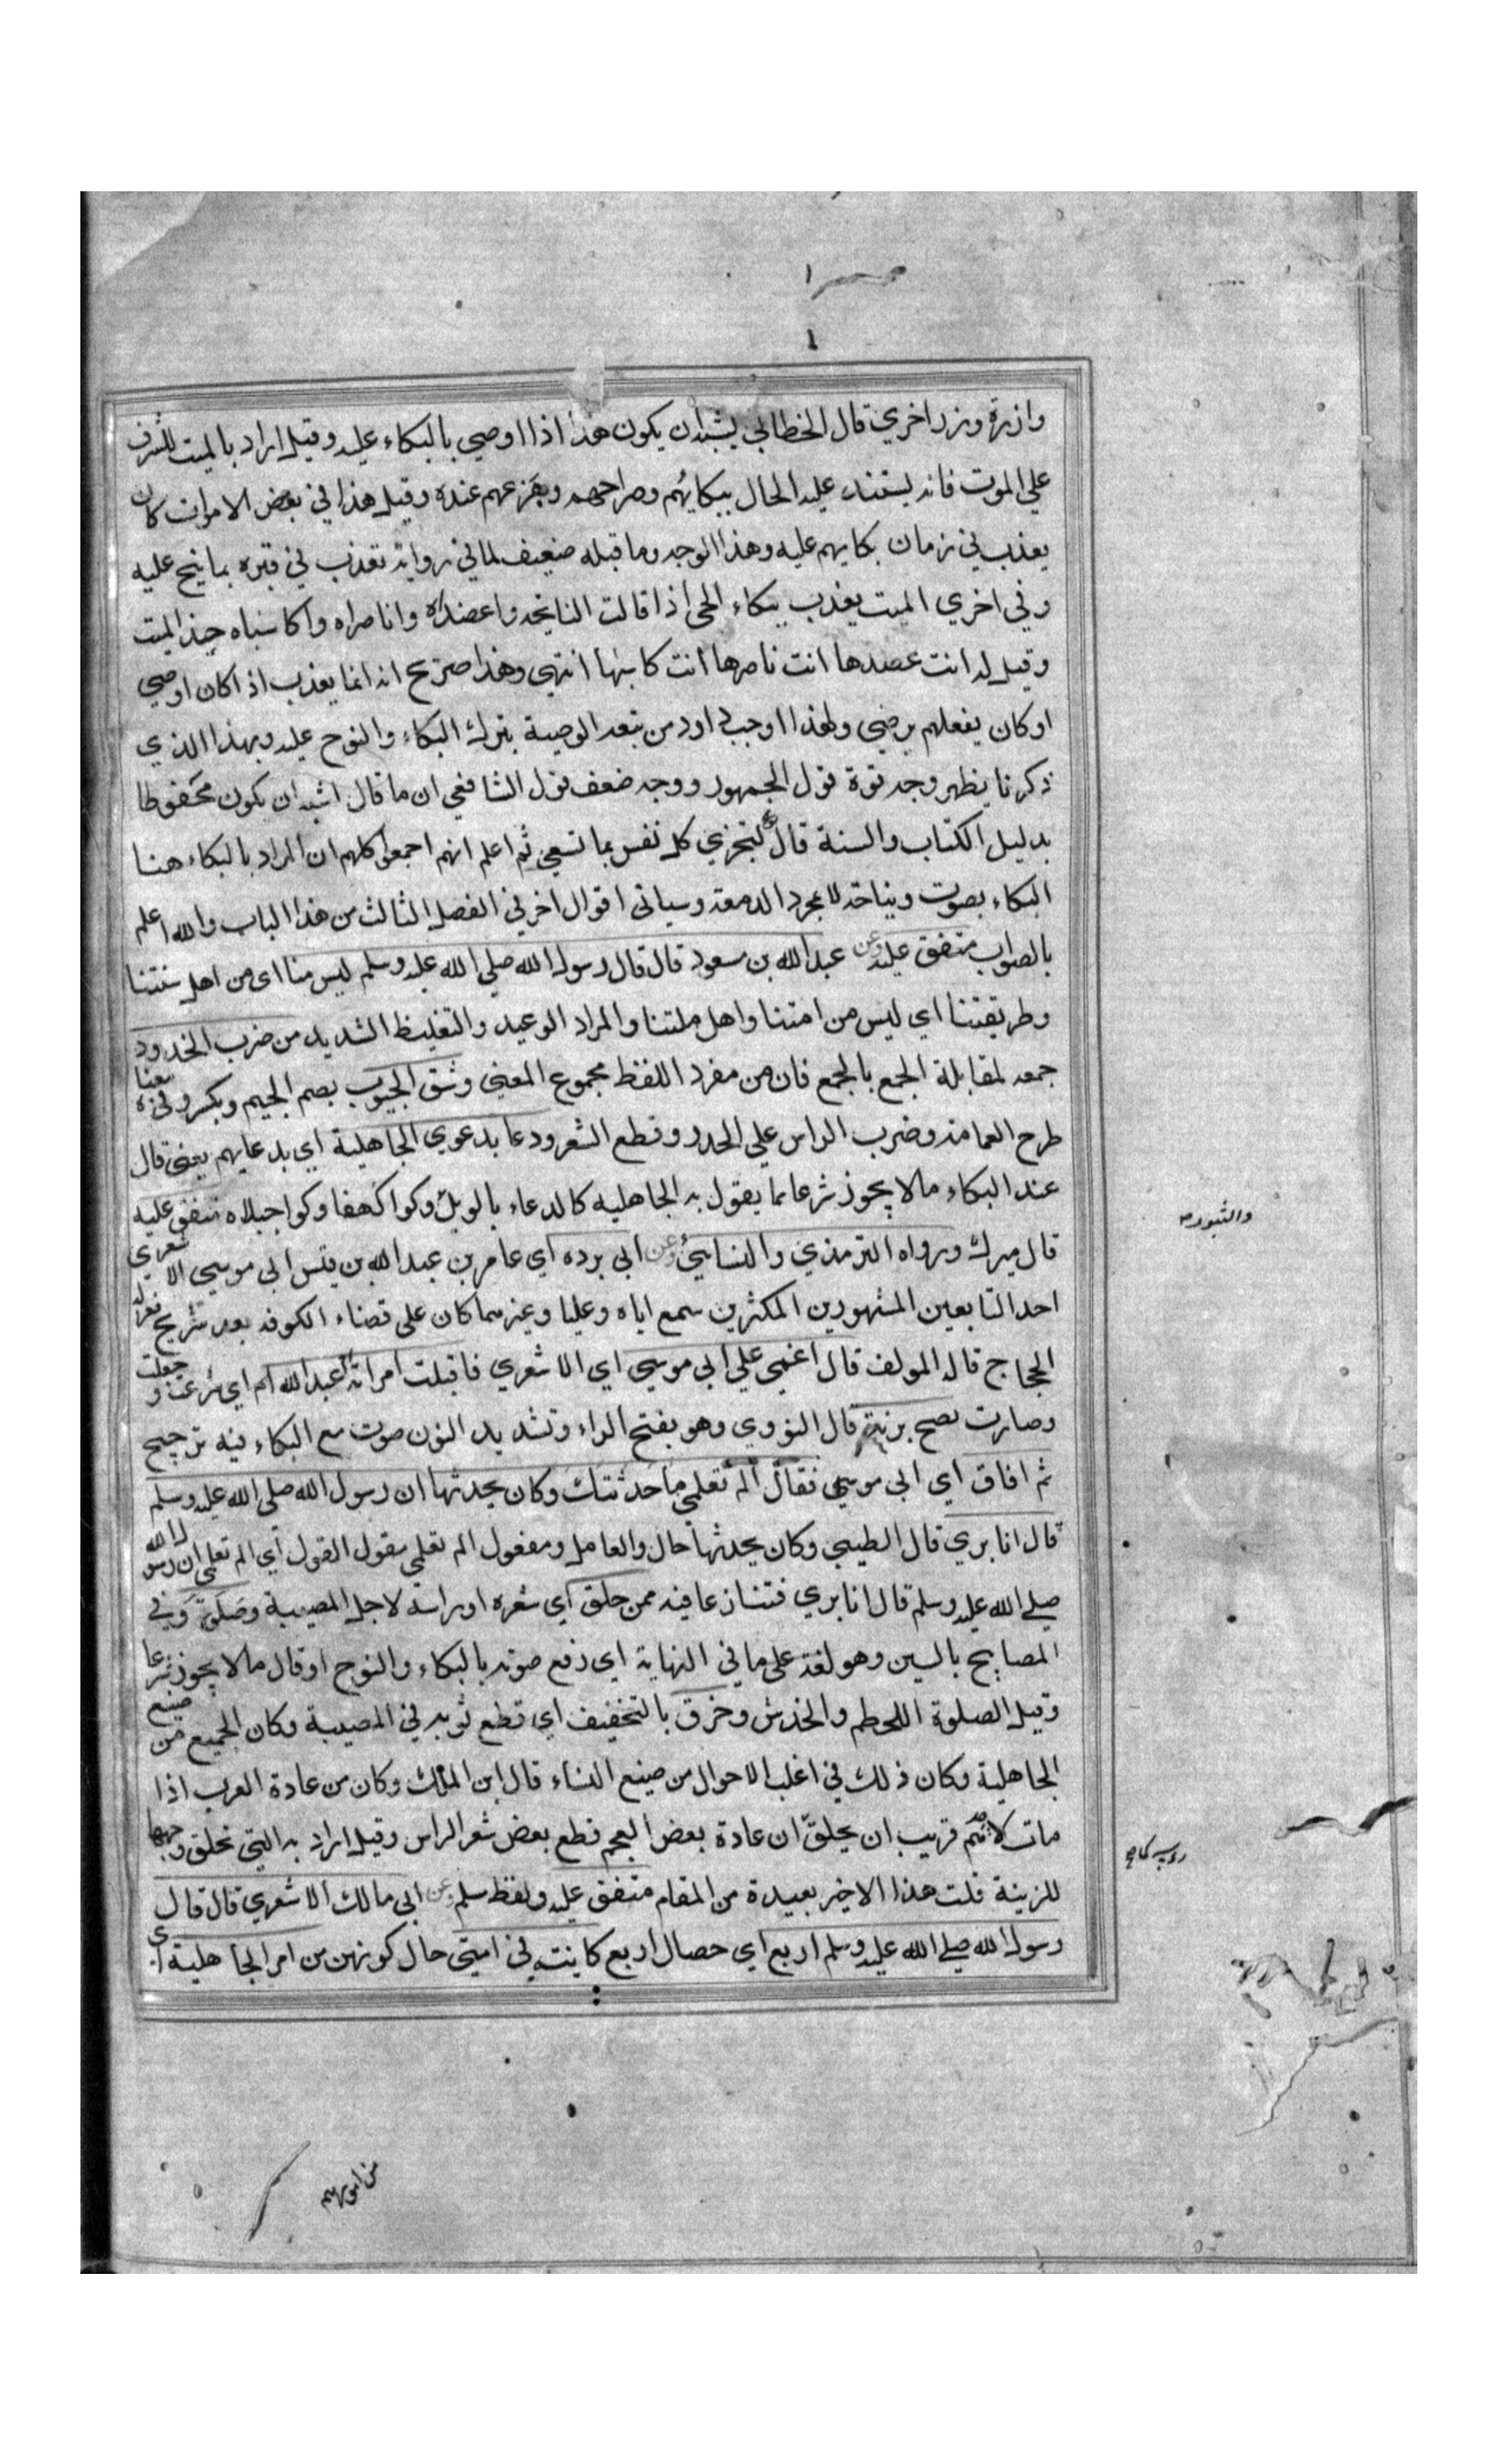 وازرة وزر اخري قال الخطابي يشبه ان يكون هذا اذا اوصي بالبكاء عليه وقيل اراد بالميت المشرف
علي الموت فانه يشتد عليه الحال ببكائهم وصراخهم وجزعهم عنده وقيل هذا في بعض الاموات كان
يعذب في زمان بكايهم عليه وهذا الوجه وما قبله ضعيف لما في رواية تعذب في قبره بما نيح عليه
وفي اخري الميت يعذب ببكاء الحي اذا قالت النايحه واعضداه واناصراه واكاسياه جبذ الميت
وقيل له انت عضدها انت ناصرها انت كاسيها انتهي وهذا صريح انه انما يعذب اذا كان اوصي
او كان يفعلهم يرضي ولهذا اوجب داود من بعد الوصية بترك البكاء والنوح عليه وبهذا الذي
ذكرنا يظهر وجه قوة قول الجمهور ووجه ضعف قول الشافعي ان ما قال اشبه ان يكون محفوظا
بدليل الكتاب والسنة قال تع لتجزي كل نفس بما تسعي ثم اعلم انهم اجمعوا كلهم ان المراد بالبكاء هنا
البكاء بصوت ونياحة لا بمجرد الدمعة وسياتي اقوال اخر في الفصل الثالث من هذا الباب والله اعلم
بالصواب متفق عليه وعن عبد الله بن مسعود قال قال رسول الله صلي الله عليه وسلم ليس منا اي من اهل سنتنا
وطريقتنا اي ليس من امتنا واهل ملتنا والمراد الوعيد والتغليظ الشديد من ضرب الخدود
جمعه لمقابلة الجمع بالجمع فان من مفرد اللفظ مجموع المعني وشق الجيوب بضم الجيم وبكسر وفي معناه
طرح العمامة وضرب الراس علي الجدر وقطع الشعر ودعا بدعوي الجاهلية اي بدعايهم يعني قال
عند البكاء ما لا يجوز شرعا مما يقول به الجاهليه كالدعاء بالويل وكوا كهفا وكوا جبلاه متفق عليه
والثبور صح
قال ميرك ورواه الترمذي والنسايئ وعن ابي برده اي عامر بن عبد الله بن قيس ابي موسي الاشعري
احد التابعين المشهورين المكثرين سمع اباه وعليا وغيرهما كان علي قضاء الكوفه بعد شريح فعزله
الحجاج قاله المولف قال اغمي علي ابي موسي اي الاشعري فاقبلت امراته ام عبد الله اي شرعت وجعلت
وصارت تصيح برنة قال النووي وهو بفتح الراء وتشديد النون صوت مع البكاء فيه ترجيح
ثم افاق اي ابي موسي فقال الم تعلمي ما حدثتك وكان يحدثها ان رسول الله صلي الله عليه وسلم
قال انا بري قال الطيبي وكان يحدثها حال والعامل ومفعول الم تعلمي مقول القول اي الم تعلمي ان رسول الله
صلي الله عليه وسلم قال انا بري فتنازعا فيه ممن حلق اي شعره او راسه لاجل المصيبة وصلق وفي
المصابيح بالسين وهو لغة علي ما في النهاية اي رفع صوته بالبكاء والنوح او قال ما لا يجوز شرعا
وقيل الصلوة اللطم والخدش وخرق بالتخفيف اي قطع ثوبه في المصيبة وكان الجميع من صنيع
الجاهلية وكان ذلك في اغلب الاحوال من صنيع النساء قال ابن الملك وكان من عادة العرب اذا
مات لاحدهم قريب ان يحلق ان عادة بعض العجم قطع بعض شعر الراس وقيل اراد به التي تحلق وجهها
للزينة قلت هذا الاخير بعيدة من المقام متفق عليه ولفظ مسلم وعن ابي مالك الاشعري قال قال
رسول الله صلي الله عليه وسلم اربع اي خصال اربع كاينة في امتي حال كونهن من امر الجاهلية اي
من امورهم